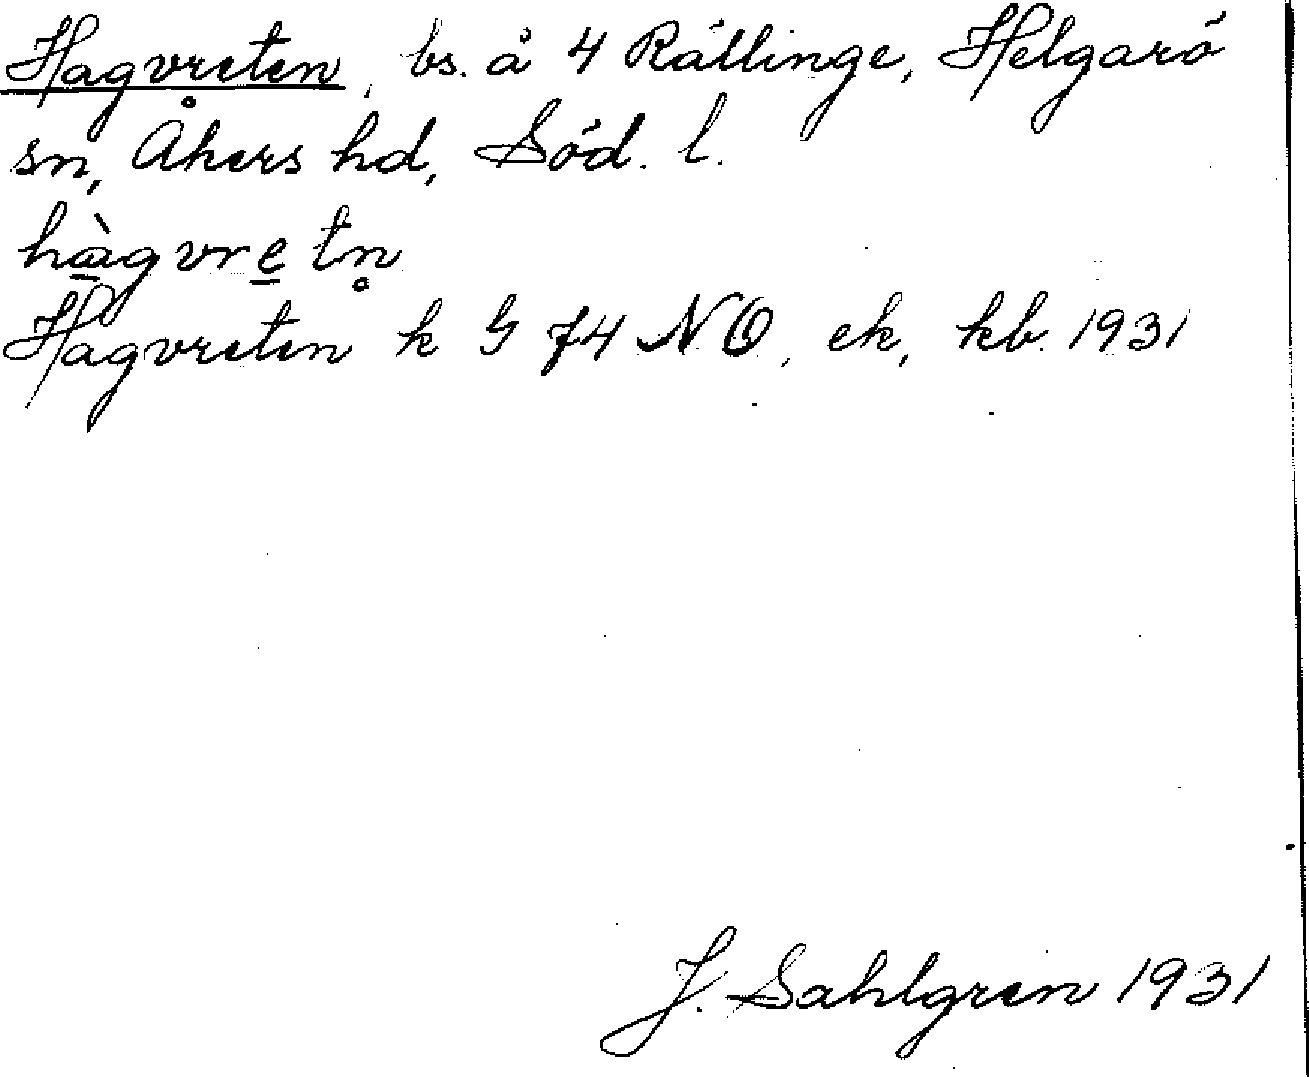 Hagvreten, bs. å 4 Rällinge, Helgarö
sn, Åkers hd, Söd. l.
hàgvretn̥
Hagvreten k G 74 NO, ek, kb 1931
J. Sahlgren 1931